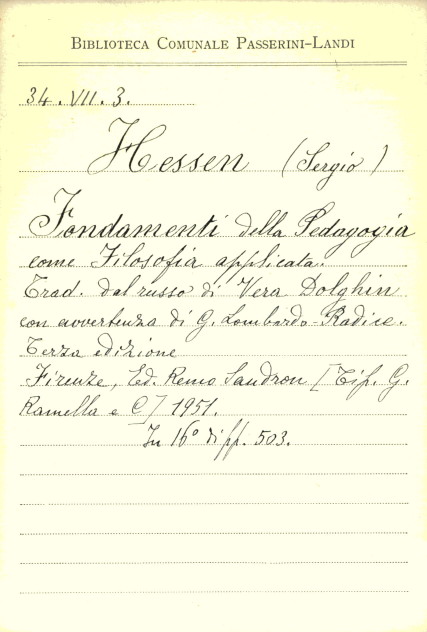 BIBLIOTECA COMUNALE PASSERINI-LANDI
34.VII.3.
Hessen (Sergio)
Fondamenti della Pedagogia
come Filosofia applicata.
Trad. dal russo di Vera Dolghin
con avvertenza di G. Lombardo-Radice.
Terza edizione
Firenze, Ed. Remo Sandron [Tip. G.
Ramella e C] 1951.
In 16° di pp. 503.